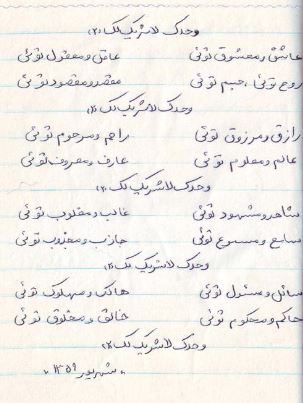 وحدک لاشریک لک (۲)
عاشق و معشوق توئی عاقل و معقول توئی
روح توئی، جسم توئی مقصد و مقصود توئی
وحدک لاشریک لک (۲)
رازق و مرزوق توئی راحم و مرحوم توئی
عالم و معلوم توئی عارف و معروف توئی
وحدک لاشریک لک (۲)
شاهد و مشهود توئی غالب و مغلوب توئی
سامع و مسموع توئی جاذب و مجذوب توئی
وحدک لاشریک لک (۲)
سائل و مسئول توئی هالک و مهلوک توئی
حاکم و محکوم توئی خالق و مخلوق توئی
وحدک لاشریک لک (۲)
"شهریور ۱۳۵۹"